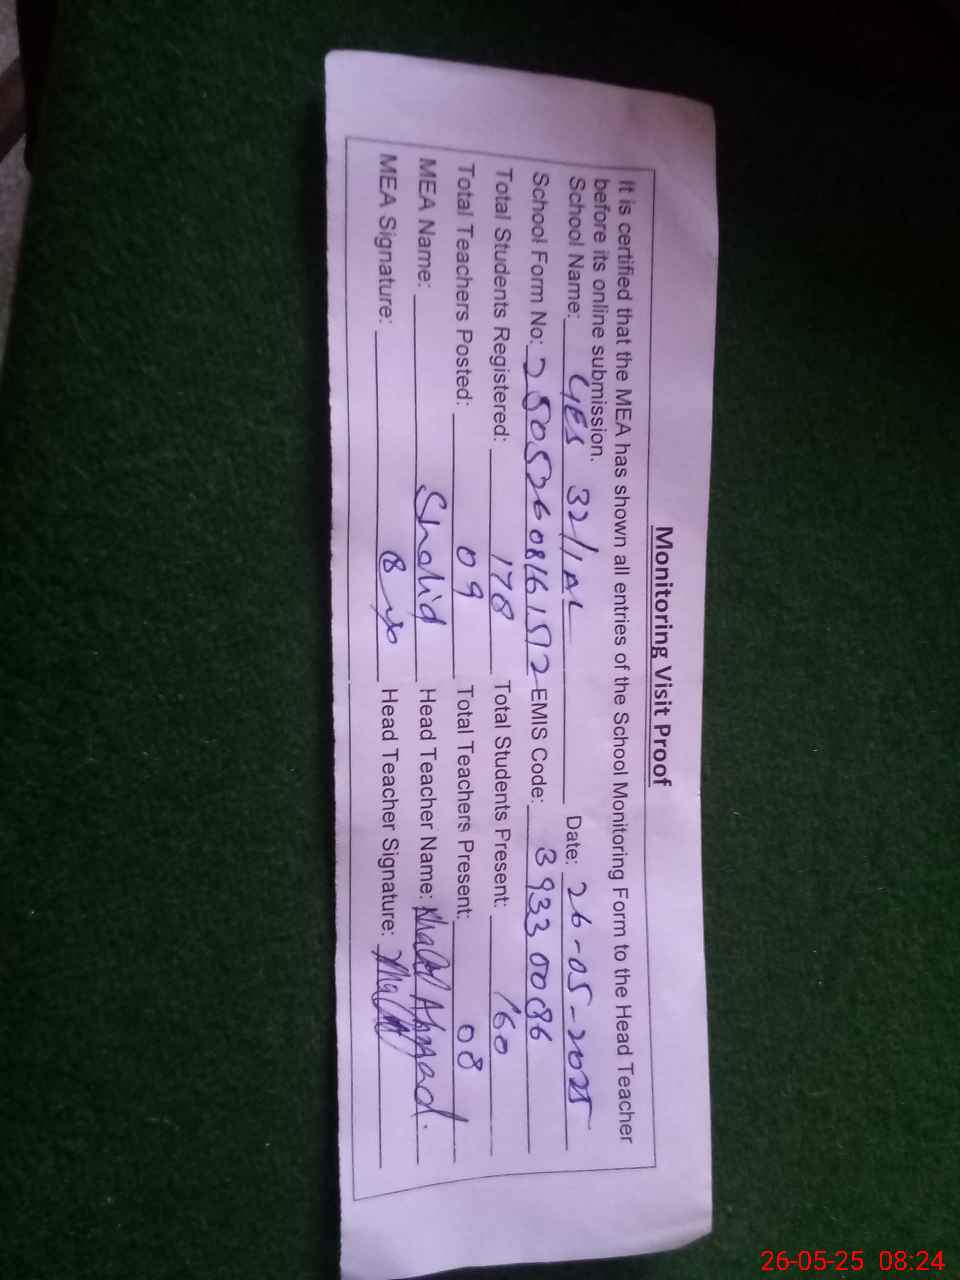 Monitoring Visit Proof
It is certified that the MEA has shown all entries of the School Monitoring Form to the Head Teacher
before its online submission.
School Name: GES 32/1AL Date: 26-05-2025
School Form No: 25052608161512 EMIS Code: 39330086
Total Students Registered: 178 Total Students Present: 160
Total Teachers Posted: 09 Total Teachers Present: 08
MEA Name: Shahid Head Teacher Name: Khalil Ahmad.
MEA Signature: Head Teacher Signature:
26-05-25 08:24